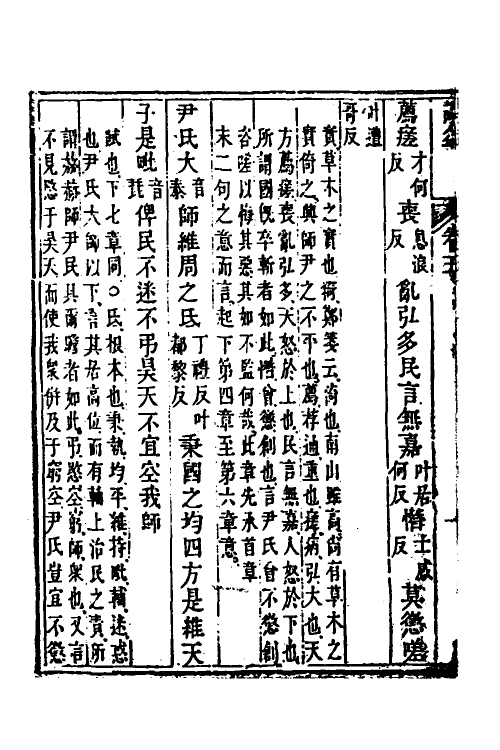 薦瘥才何反喪息浪反亂弘多民言無嘉叶居何反憯士感反莫懲嗟
叶遭哥反
實草木之實也猗鄭箋云倚也南山雖高尚有草木之
實倚之興師尹之不平也薦荐通重也瘥病弘大也天
方薦瘥喪亂弘多天怒於上也民言無嘉人怒於下也
所謂國旣卒斬者如此憯曾懲創也言尹氏曾不懲創
咨嗟以悔其惡其如不監何哉此章先承首章
末二句之意而言起下第四章至第六章意
尹氏大音泰師維周之氐丁禮反叶都黎反秉國之均四方是維天
子是毗音琵俾民不迷不弔昊天不宜空我師
賦也下七章同○氐根本也秉執均平維持毗輔迷惑
也尹氏大師以下言其居高位而有輔上治民之責所
謂赫赫師尹民具爾瞻者如此弔愍空窮師衆也又言
不見愍于昊天而使我衆倂及于窮空尹氏豈宜不懲